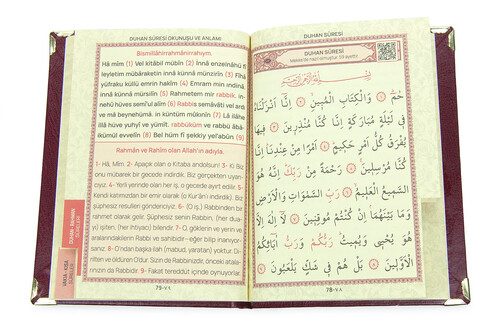 DUHAN SÛRESİ OKUNUŞU VE ANLAMI
Bismillâhirrahmânirrahîym.
Hâ mîm (1) Vel kitâbil mübîn (2) İnnâ enzelnâhü fî
leyletim mübâraketin innâ künnâ münzirîn (3) Fîhâ
yüfraku küllü emrin hakîm (4) Emram min ındinâ,
innâ künnâ mürsilîn (5) Rahmetem mir rabbik, in-
nehû hüves semî'ul alîm (6) Rabbis semâvâti vel ard
ve mâ beynehümâ, in küntüm mûkınîn (7) Lâ ilâhe
illâ hüve yuhyî ve yümît, rabbüküm ve rabbü âbâ-
ikümül evvelîn (8) Bel hüm fî şekkiy yel'abûn (9)
Rahmân ve Rahîm olan Allah'ın adıyla.
1- Hâ, Mîm. 2- Apaçık olan o Kitaba andolsun! 3- Ki Biz
onu mübarek bir gecede indirdik. Biz gerçekten uyarı-
cıyız. 4- Yeli yerinde olan her iş, o gecede ayırt edilir. 5-
Kendi katımızdan bir emir olarak (o Kur'ânı indirdik). Biz
şüphesiz resulleri göndericiyiz. 6- (O iş,) Rabbinden bir
rahmet olarak gelir. Şüphesiz senin Rabbin, (her dua-
yı) işiten, (her ihtiyacı) bilendir. 7- O, göklerin ve yerin ve
aralarındakilerin Rabbi ve sahibidir-eğer bilip inanıyor-
sanız. 8- O'ndan başka ilah (mabud, yaratan) yoktur. Di-
rilten ve öldüren Odur. Sizin de Rabbinizdir, önceki atala-
rınızın da Rabbidir. 9- Fakat tereddüt içinde oynuyorlar.
79-٧٩
DUHAN SÛRESİ
DUHAN SÛRESİ
بِسْمِ اللَّهِ الرَّحْمَنِ الرَّحِيمِ
حٰمٓ ﴿١﴾ وَالْكِتَابِ الْمُبِينِ ﴿٢﴾ اِنَّٓا اَنْزَلْنَاهُ
فِي لَيْلَةٍ مُبَارَكَةٍ اِنَّا كُنَّا مُنْذِرِينَ ﴿٣﴾ فِيهَا
يُفْرَقُ كُلُّ اَمْرٍ حَكِيمٍ ﴿٤﴾ اَمْرًا مِنْ عِنْدِنَا اِنَّا
كُنَّا مُرْسِلِينَ ﴿٥﴾ رَحْمَةً مِنْ رَبِّكَ اِنَّهُ هُوَ
السَّمِيعُ الْعَلِيمُ ﴿٦﴾ رَبِّ السَّمٰوَاتِ وَالْاَرْضِ
وَمَا بَيْنَهُمَا اِنْ كُنْتُمْ مُوقِنِينَ ﴿٧﴾ لَٓا اِلٰهَ اِلَّا
هُوَ يُحْيِي وَيُمِيتُ رَبُّكُمْ وَرَبُّ اٰبَٓائِكُمُ
الْاَوَّلِينَ ﴿٨﴾ بَلْ هُمْ فِي شَكٍّ يَلْعَبُونَ ﴿٩﴾
78-٧٨